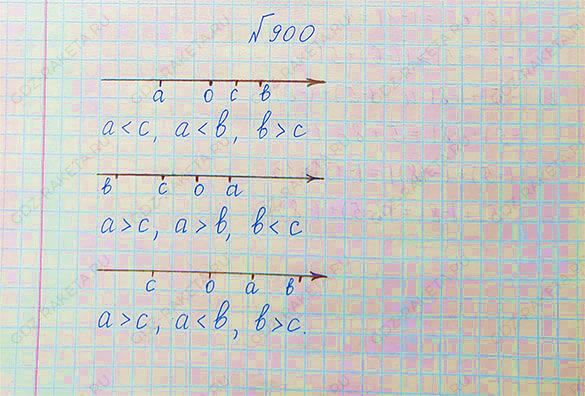 №900
a 0 c в
a < c, a < в, в > c
в c 0 a
a > c, a > в, в < c
c 0 a в
a > c, a < в, в > c.
GDZ-RAKETA.RU